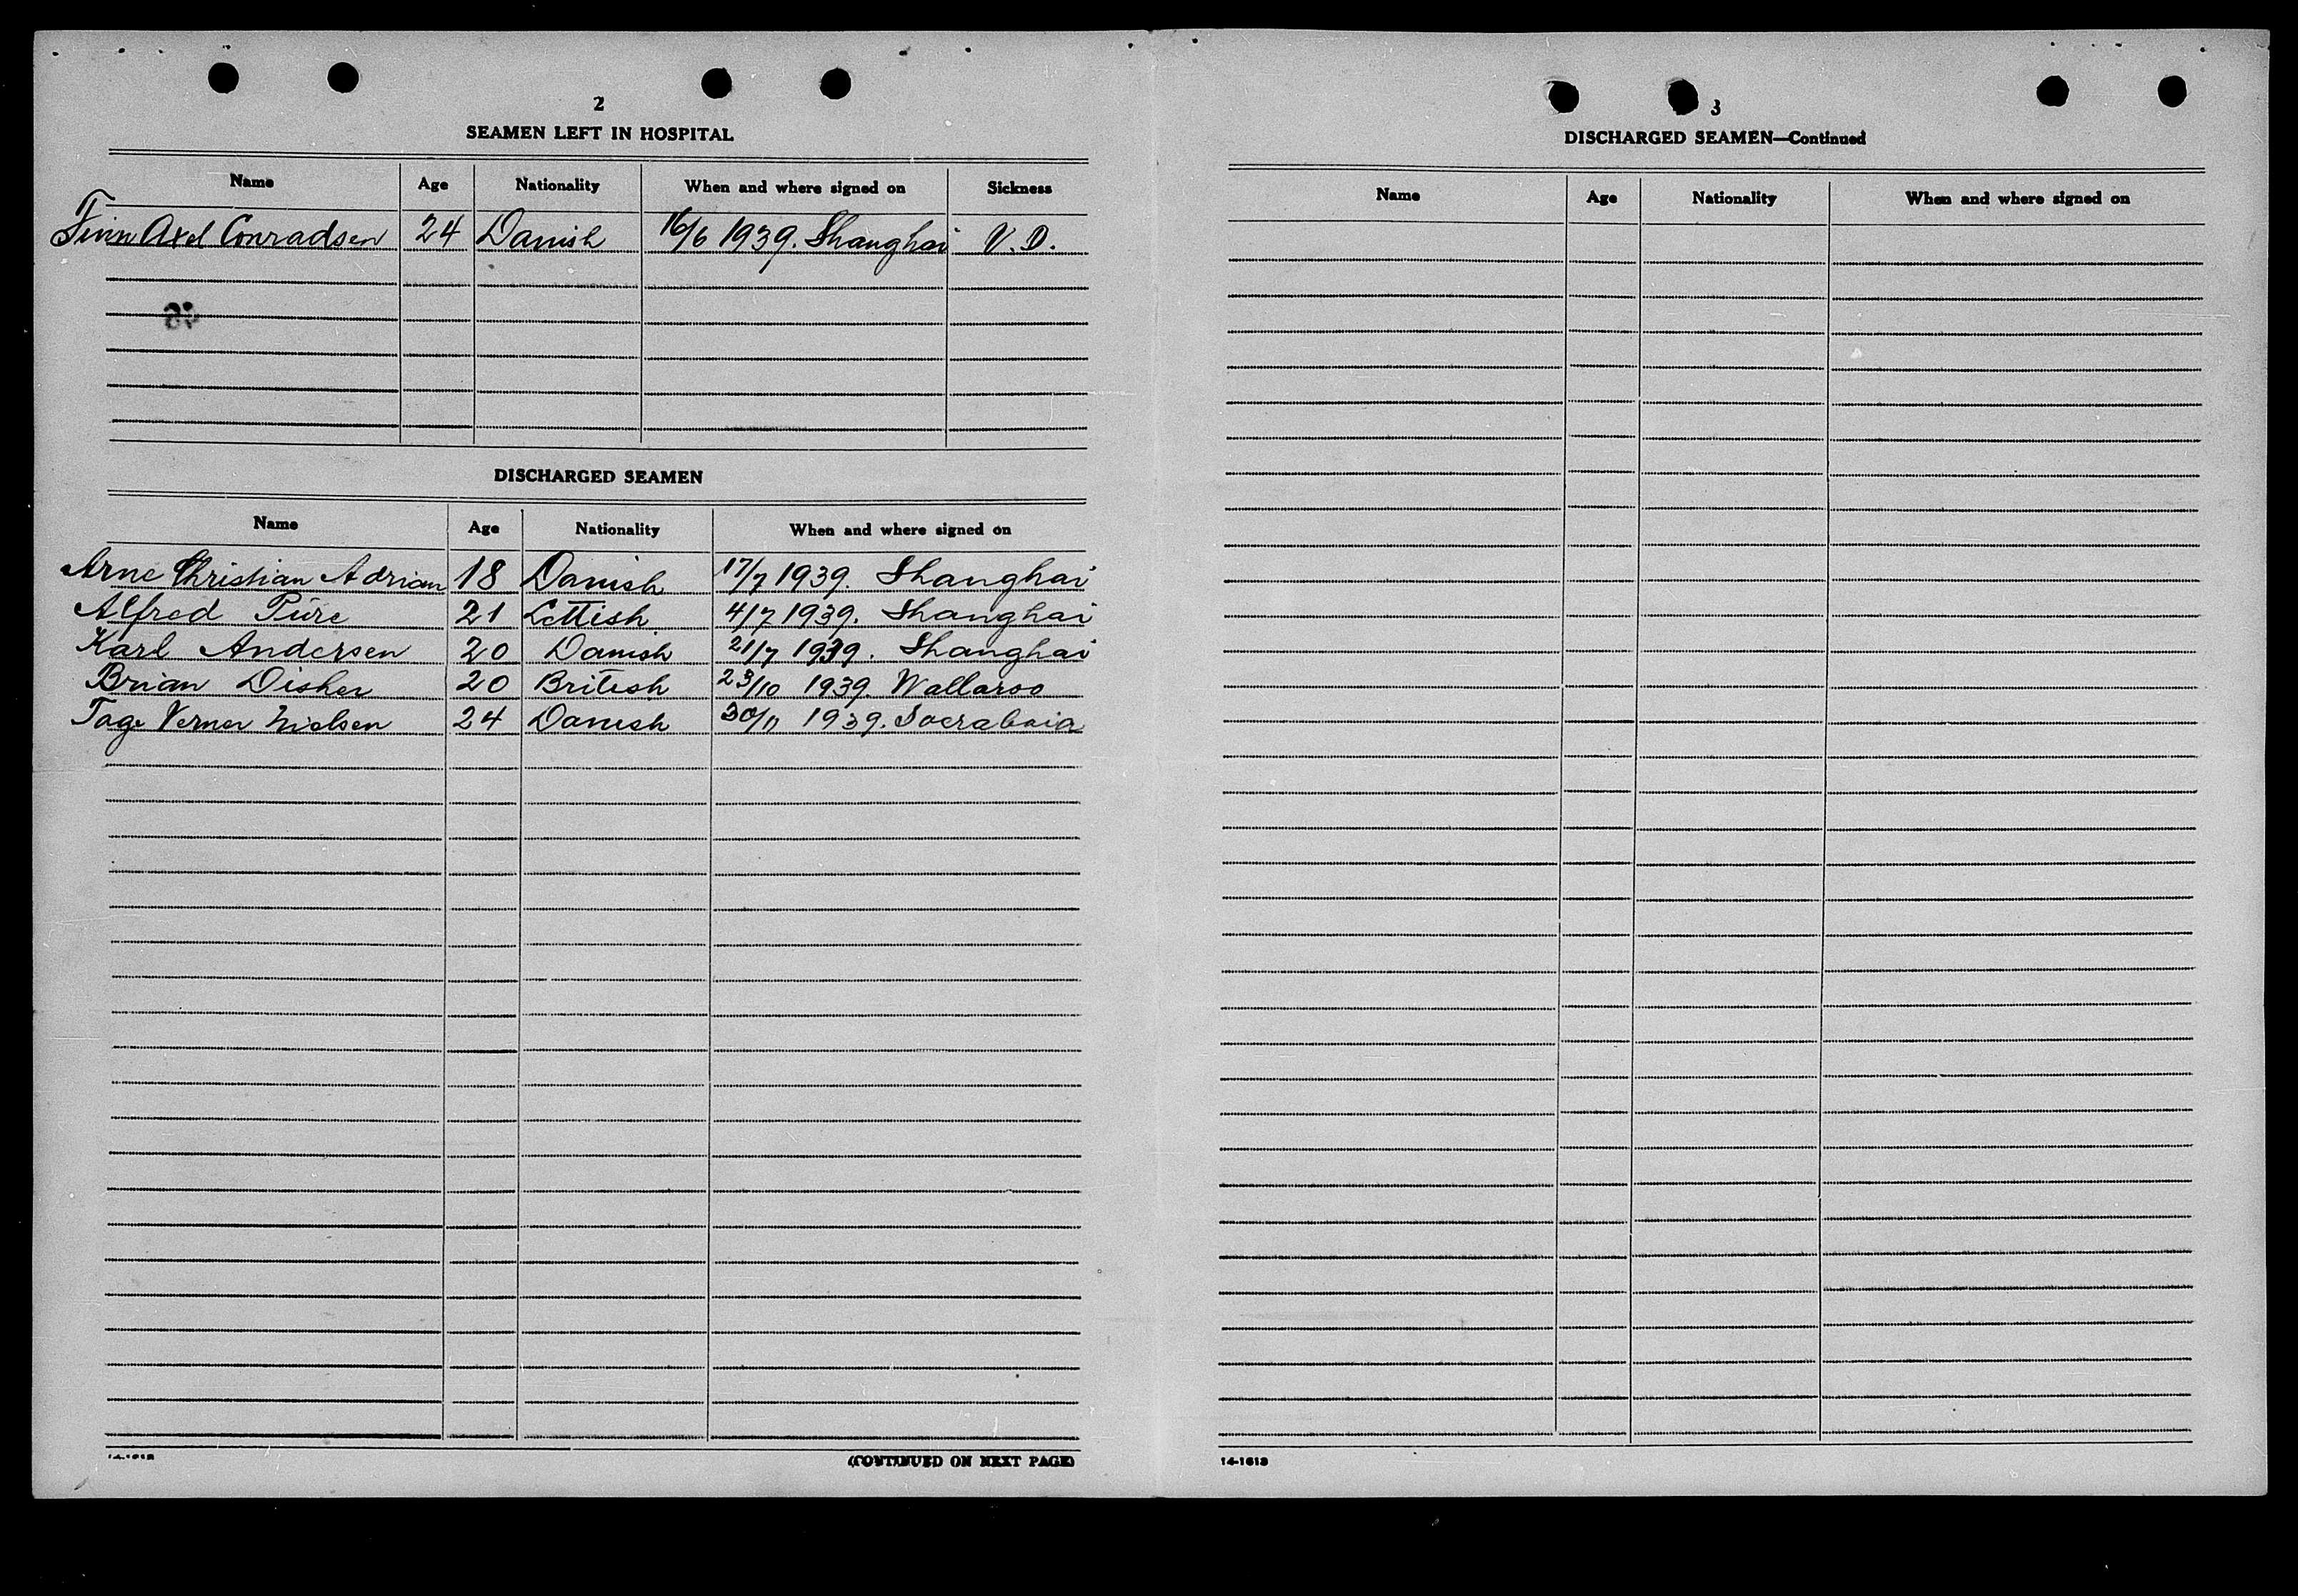 2
SEAMEN LEFT IN HOSPITAL
Name Age Nationality When and where signed on Sickness
Finn Axel Conradsen 24 Danish 16/6 1939. Shanghai V.D.
DISCHARGED SEAMEN
Name Age Nationality When and where signed on
Arne Christian Adrian 18 Danish 17/7 1939. Shanghai
Alfred 21 Lettish 4/7 1939. Shanghai
Karl Andersen 20 Danish 21/7 1939. Shanghai
Brian Disher 20 British 23/10 1939. Wallaroo
Tage Verner Nielsen 24 Danish 30/11 1939. Soerabaia
(CONTINUED ON NEXT PAGE)
3
DISCHARGED SEAMEN—Continued
Name Age Nationality When and where signed on
14-1613